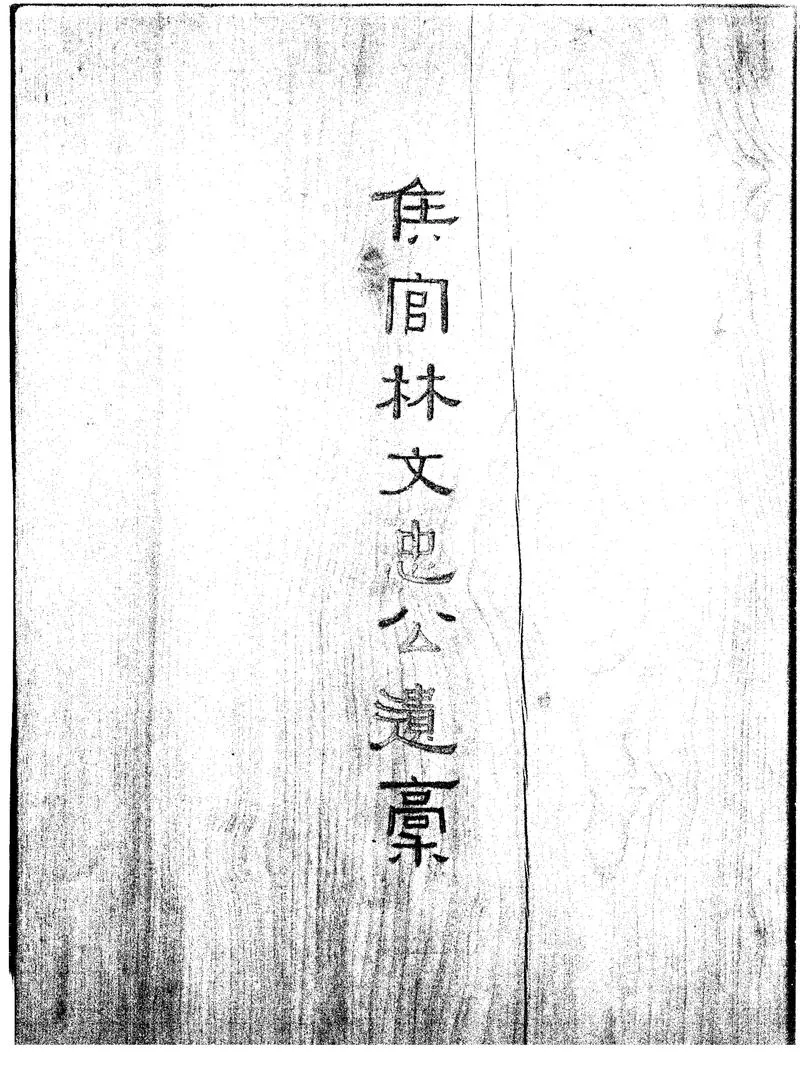 侯官林文忠公遺稾